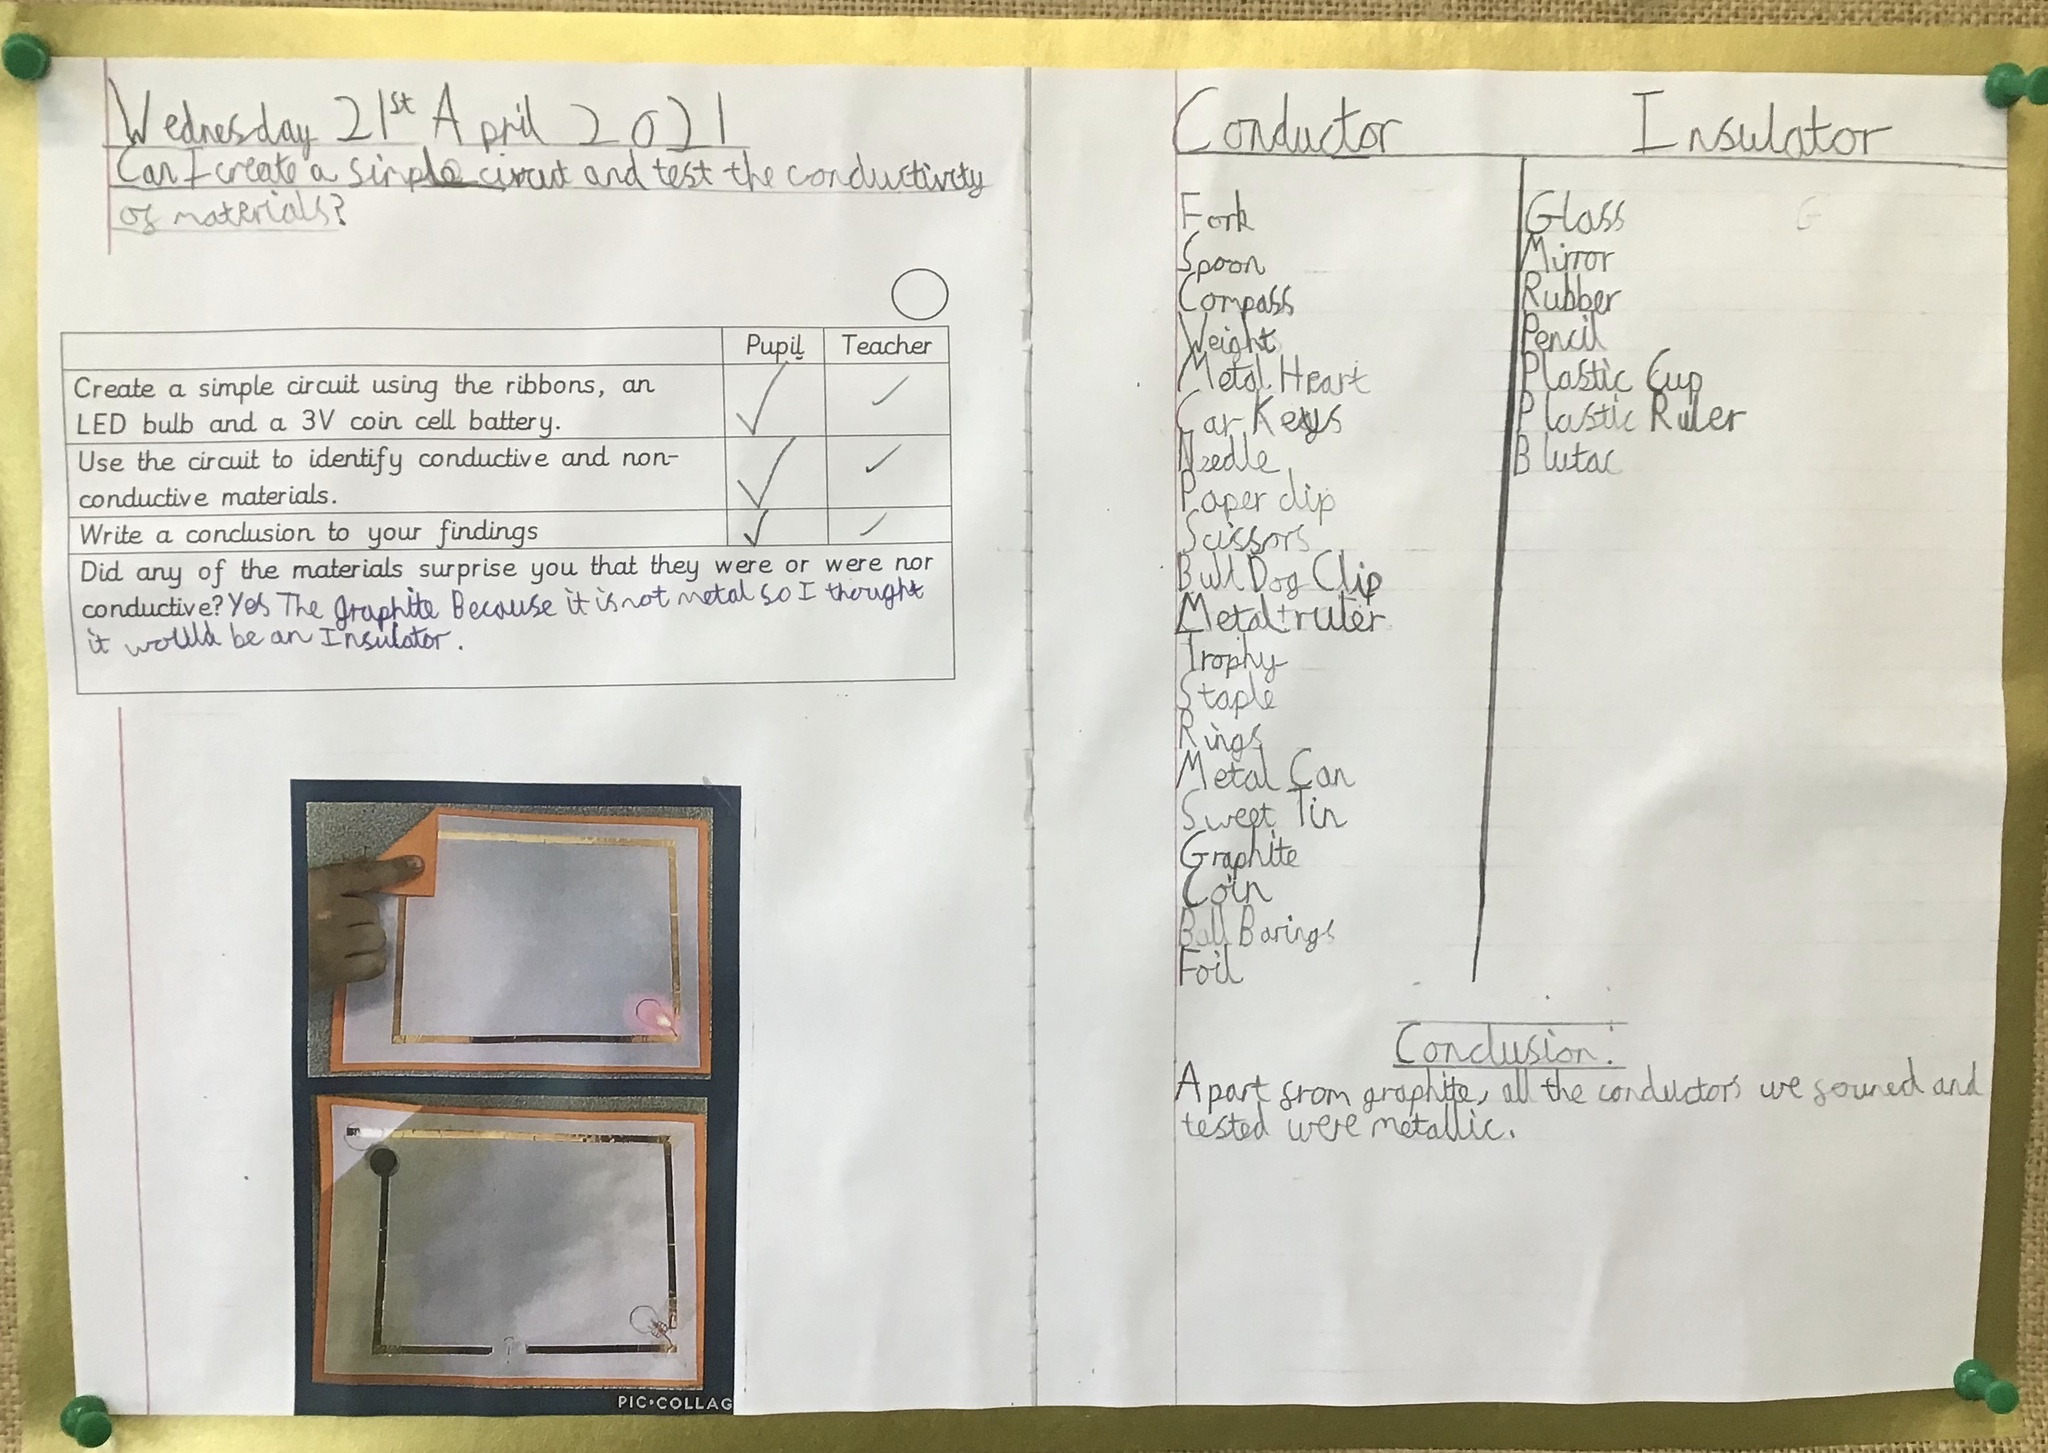 Wednesday 21st April 2021
Can I create a simple circut and test the conductivity
of materials?
Pupil Teacher
Create a simple circuit using the ribbons, an
LED bulb and a 3V coin cell battery.
Use the circuit to identify conductive and non-
conductive materials.
Write a conclusion to your findings
Did any of the materials surprise you that they were or were nor
conductive? Yes The graphite Because it is not metal so I thought
it would be an Insulator.
PIC•COLLAG
Conductor Insulator
Fork Glass G
Spoon Mirror
Compass Rubber
Weight Pencil
Metal Heart Plastic Cup
Car Keys Plastic Ruler
Needle Blutac
Paper clip
Scissors
Bull Dog Clip
Metal ruler
Trophy
Staple
Rings
Metal Can
Sweet Tin
Graphite
Coin
Ball Barings
Foil
Conclusion:
Apart from graphite, all the conductors we founed and
tested were metallic.